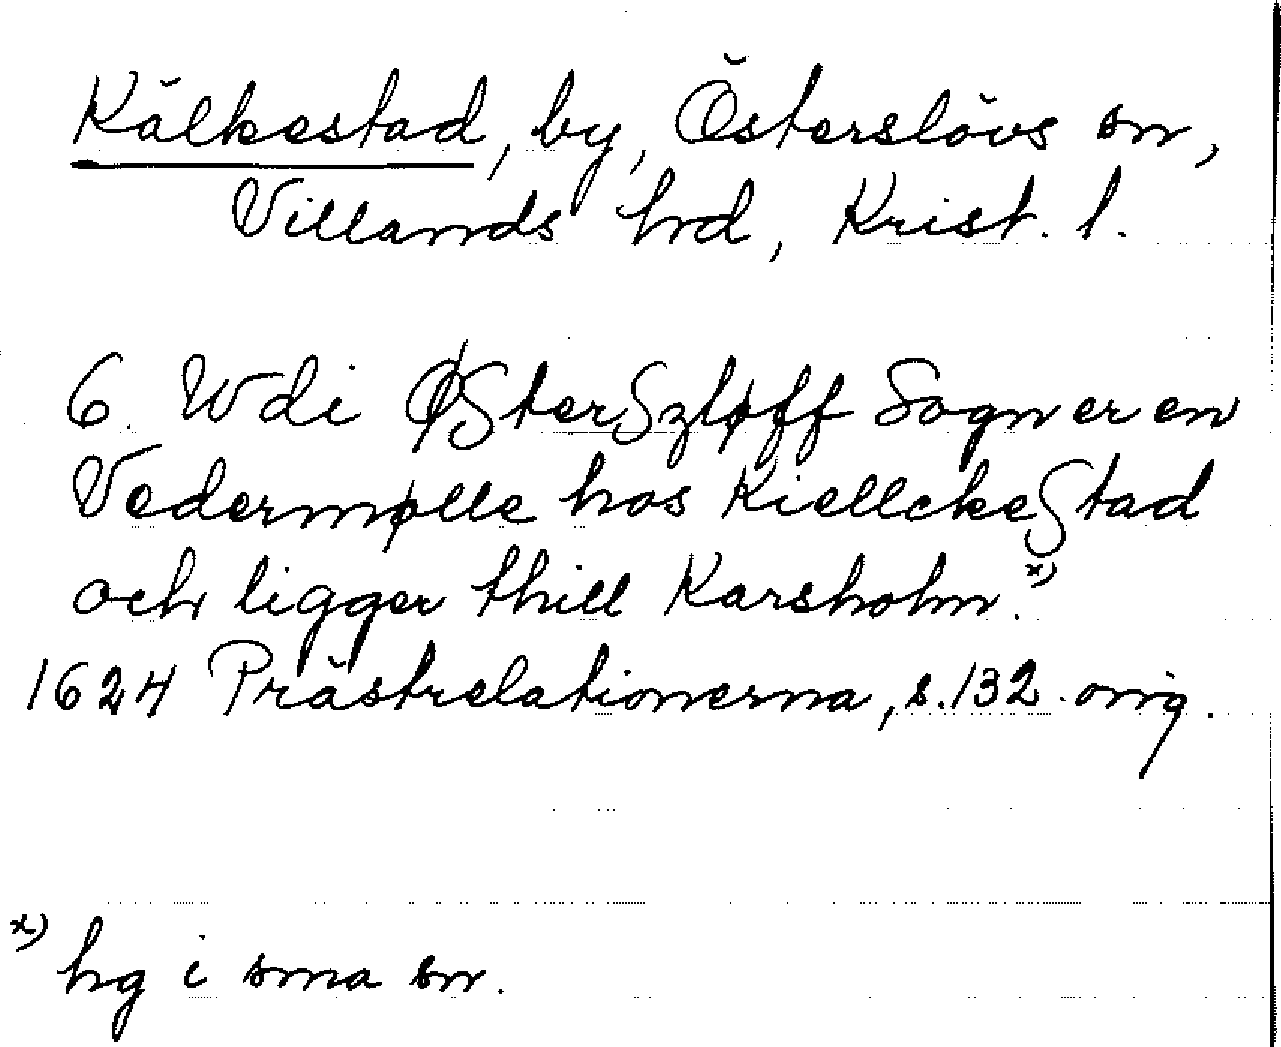 Kälkestad, by, Österslövs sn,
Villands hd, Krist. l.
6. Wdi ØsterSzløff Sogn er en
Vedermølle hos KiellckeStad
och ligger thill Karsholm.x)
1624 Prästrelationerna, s. 132 orig.
x) hg i sma sn.